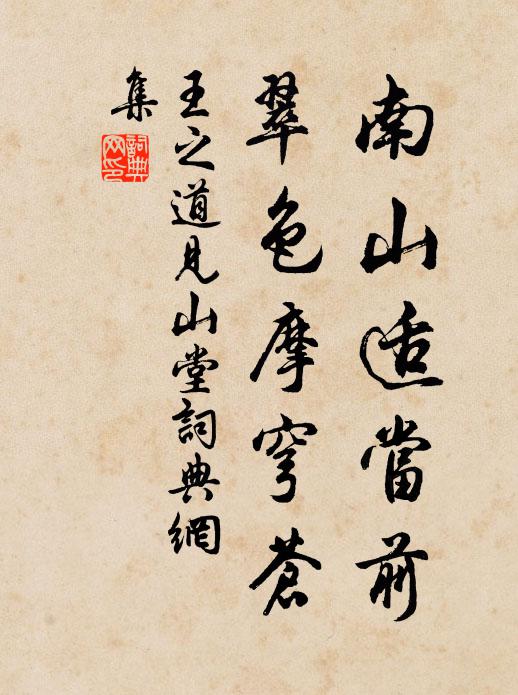 南山适當前
翠色摩穹蒼
王之道見山堂詞典網
集
詞典
网印